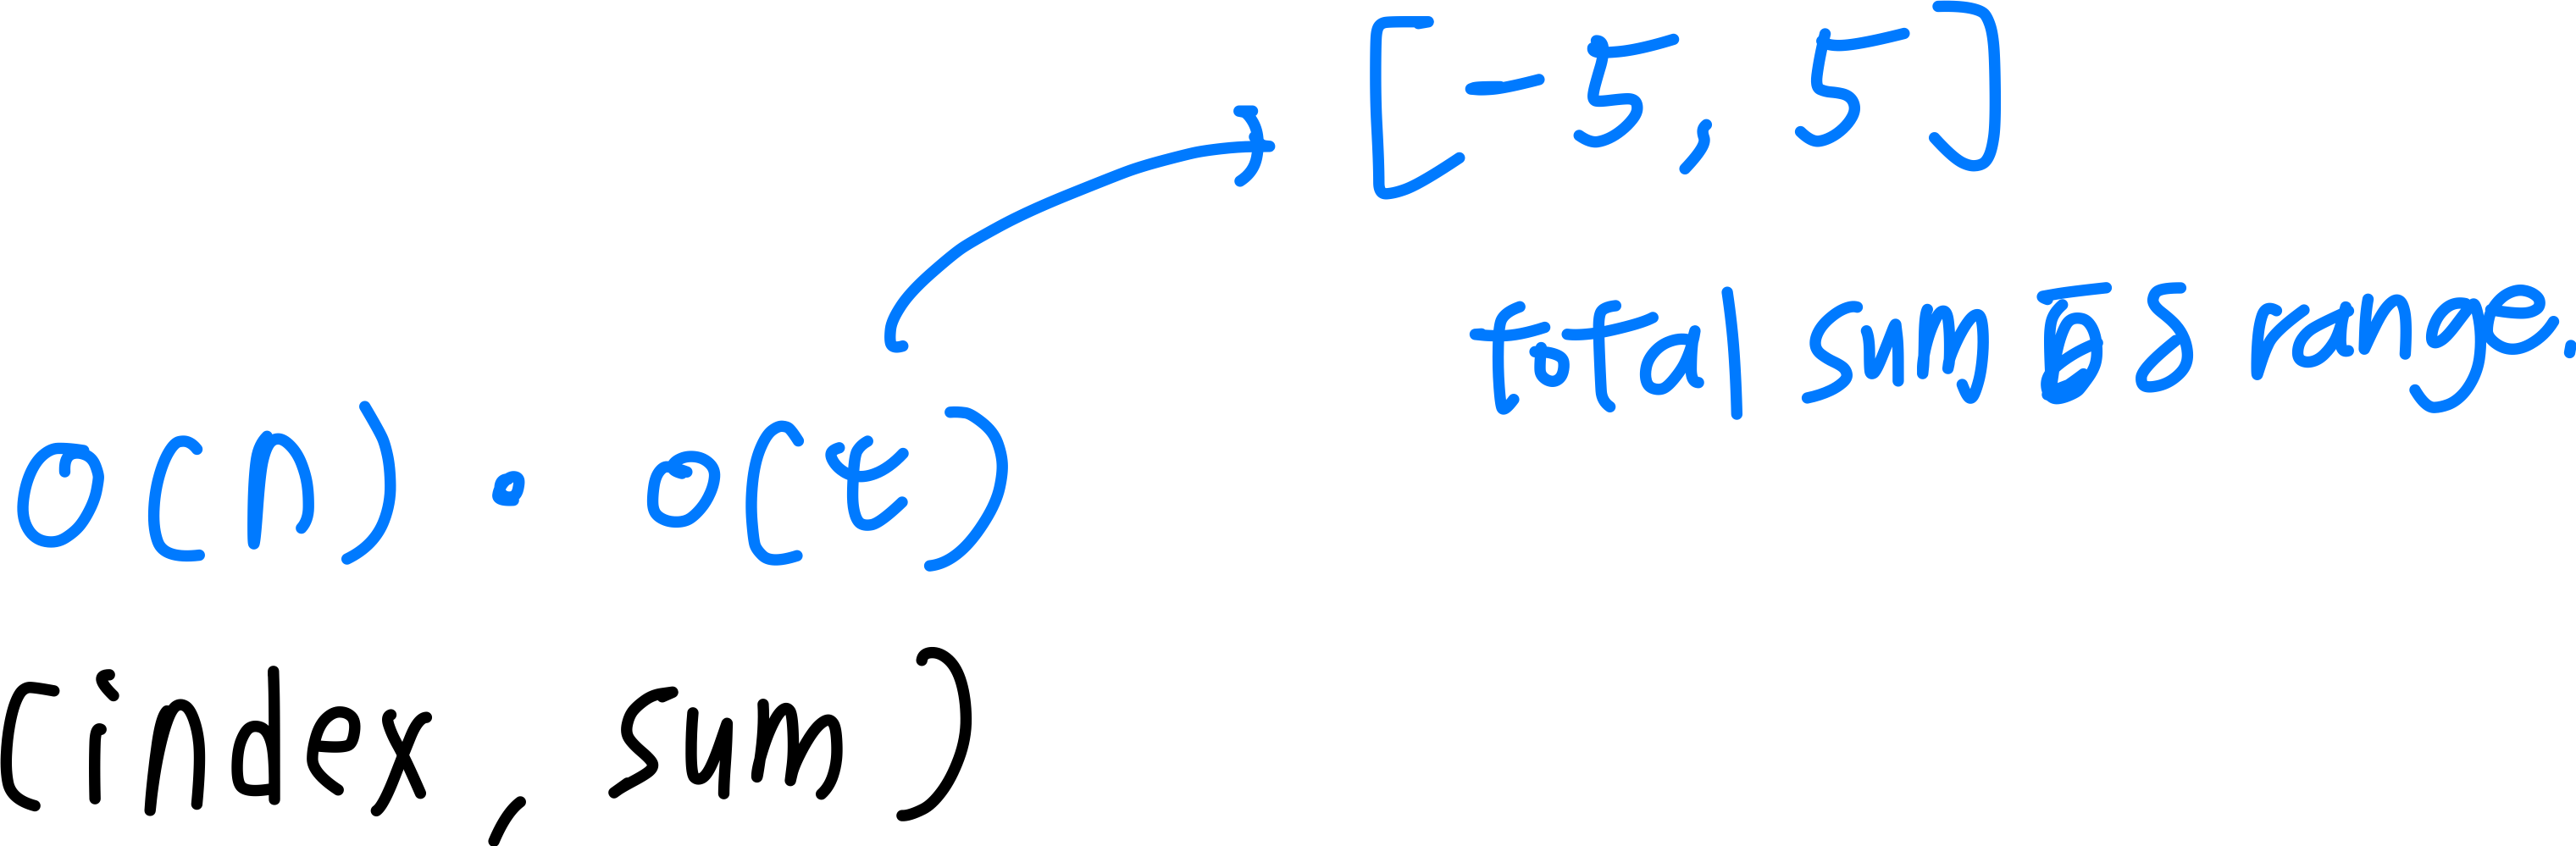 [-5, 5]
total sum range.
O(n) · O(t)
(index, sum)